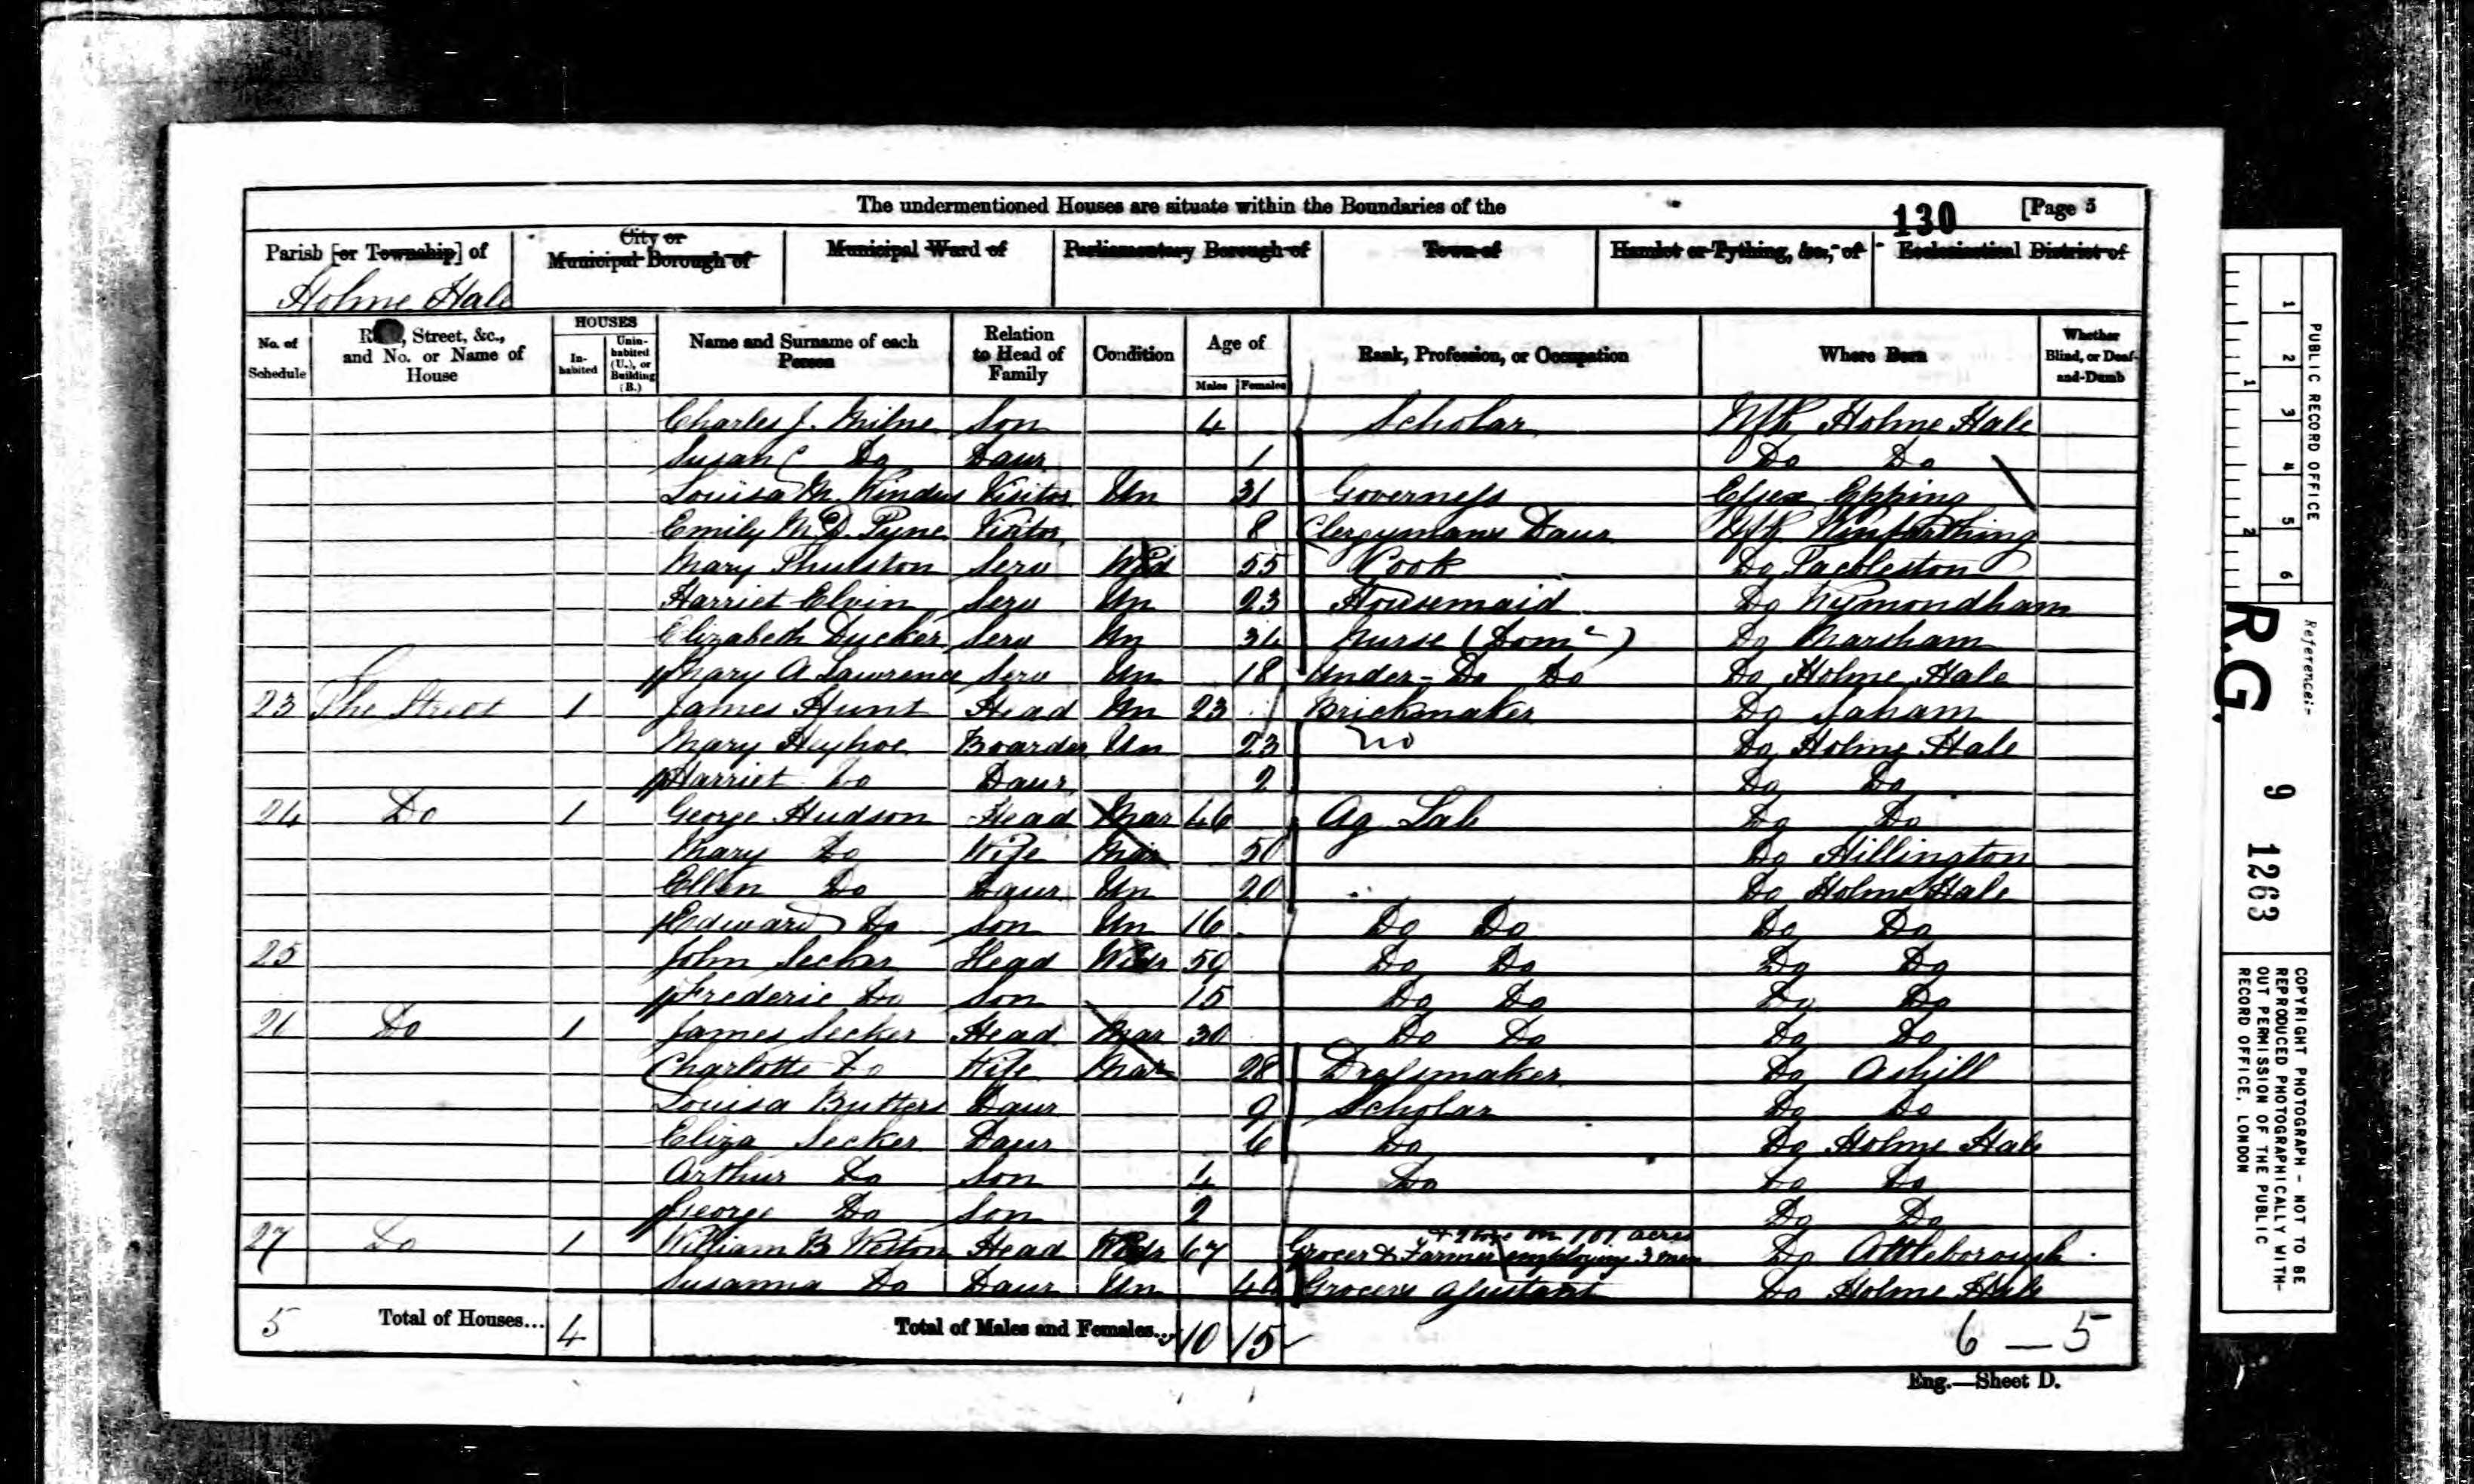 The undermentioned Houses are situate within the Boundaries of the
130 [Page 5
Parish [or Township] of City or Municipal Borough of Municipal Ward of Parliamentary Borough of Town of Hamlet or Tything, &c., of Ecclesiastical District of
Holme Hale
No. of Schedule , Street, &c., and No. or Name of House HOUSES Inhabited Uninhabited (U.), or Building (B.) Name and Surname of each Person Relation to Head of Family Condition Age of Males Females Rank, Profession, or Occupation Where Born Whether Blind, or Deaf-and-Dumb
Charles J. Milne Son 4 Scholar Nfk Holme Hale
Susan C Do Daur 1 Do Do
Louisa M. Windus Visitor Un 31 Governess Essex Epping
Emily M. D. Pyne Visitor 8 Clergymans Daur Nfk Winfarthing
Mary Thurston Serv Wid 55 Cook Do
Harriet Elvin Serv Un 23 Housemaid Do Wymondham
Elizabeth Ducker Serv Un 34 Nurse (Domc) Do Marsham
Mary A Lawrence Serv Un 18 Under-Do Do Do Holme Hale
23 The Street 1 James Hunt Head Un 23 Brickmaker Do Saham
Mary Heyhoe Boarder Un 23 no Do Holme Hale
Harriet Do Daur 2 Do Do
24 Do 1 George Hudson Head Mar 46 Ag Lab Do Do
Mary Do Wife Mar 50 Do Hillington
Ellen Do Daur Un 20 Do Holme Hale
Edward Do Son Un 16 Do Do Do Do
25 John Secker Head Widr 59 Do Do Do Do
Frederic Do Son 15 Do Do Do Do
26 Do 1 James Secker Head Mar 30 Do Do Do Do
Charlotte Do Wife Mar 28 Dressmaker Do Ashill
Louisa Butters Daur 9 Scholar Do Do
Eliza Secker Daur 6 Do Do Holme Hale
Arthur Do Son 4 Do Do Do
George Do Son 2 Do Do
27 Do 1 William B Weston Head Widr 67 Grocer & Farmer acres employing 3 men Do Attleborough
Susanna Do Daur Un 44 Grocers Assistant Do Holme Hale
5 Total of Houses... 4 Total of Males and Females... 10 15 6 — 5
Eng.—Sheet D.
PUBLIC RECORD OFFICE
1 2 3 4 5 6
1 2
Reference:-
R.G. 9 1263
COPYRIGHT PHOTOGRAPH - NOT TO BE
REPRODUCED PHOTOGRAPHICALLY WITH-
OUT PERMISSION OF THE PUBLIC
RECORD OFFICE, LONDON